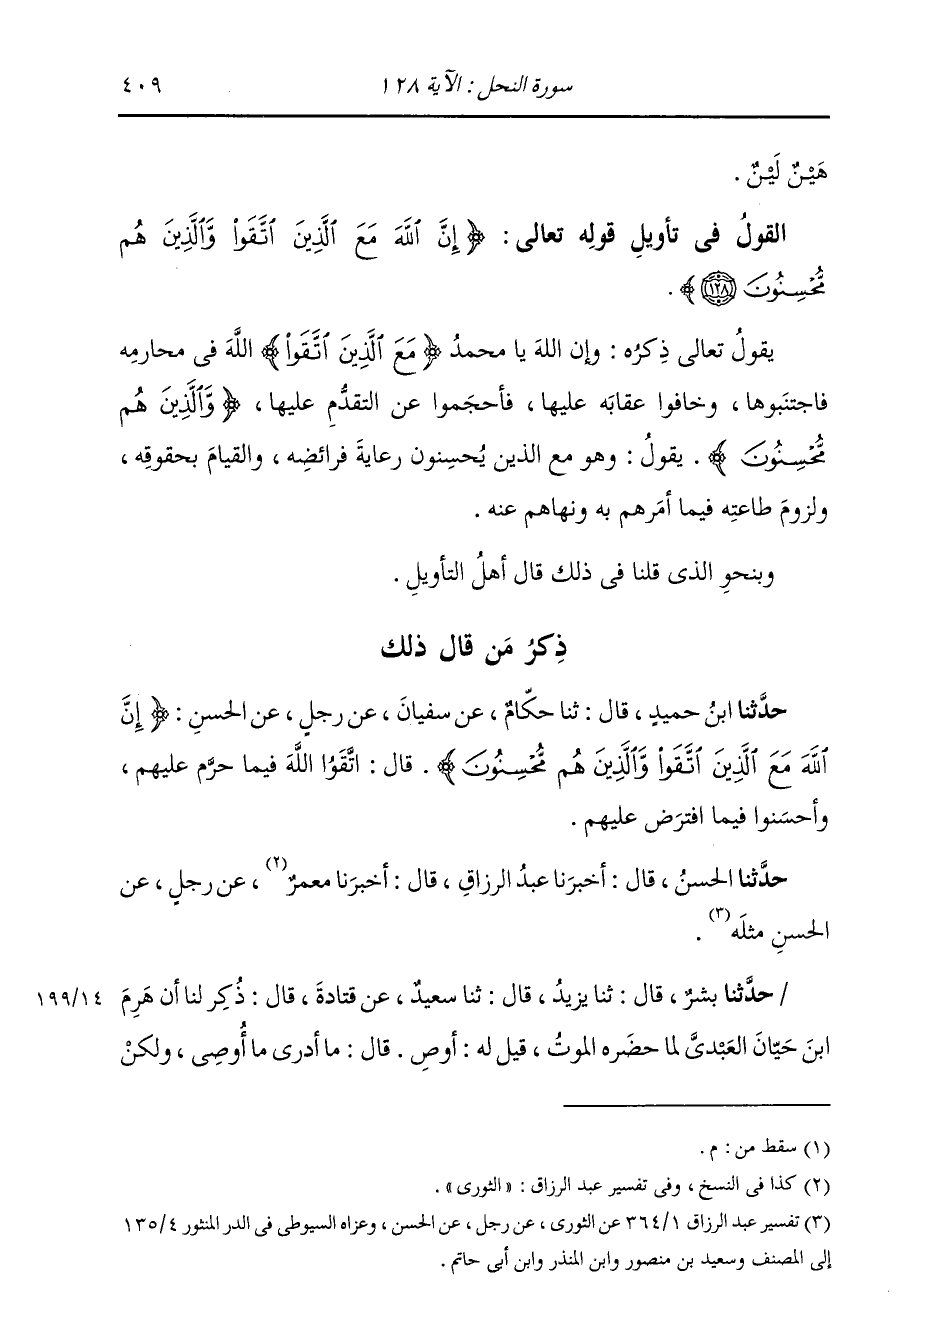 سورة النحل : الآية ١٢٨ ٤٠٩
هَيْنٌ لَيْنٌ .
القولُ فى تأويلِ قولِه تعالى : ﴿ إِنَّ ٱللَّهَ مَعَ ٱلَّذِينَ ٱتَّقَوا۟ وَّٱلَّذِينَ هُم
مُّحْسِنُونَ ١٢٨ ﴾ .
يقولُ تعالى ذِكرُه : وإن اللهَ يا محمدُ ﴿ مَعَ ٱلَّذِينَ ٱتَّقَوا۟ ﴾ اللَّهَ فى محارمِه
فاجتنَبوها ، وخافوا عقابَه عليها ، فأحجَموا عن التقدُّمِ عليها ، ﴿ وَّٱلَّذِينَ هُم
مُّحْسِنُونَ ﴾ . يقولُ : وهو مع الذين يُحسِنون رعايةَ فرائضِه ، والقيامَ بحقوقِه ،
ولزومَ طاعتِه فيما أمَرهم به ونهاهم عنه .
وبنحوِ الذى قلنا فى ذلك قال أهلُ التأويلِ .
ذِكرُ مَن قال ذلك
حدَّثنا ابنُ حميدٍ ، قال : ثنا حكّامٌ ، عن سفيانَ ، عن رجلٍ ، عن الحسنِ : ﴿ إِنَّ
ٱللَّهَ مَعَ ٱلَّذِينَ ٱتَّقَوا۟ وَّٱلَّذِينَ هُم مُّحْسِنُونَ ﴾ . قال : اتَّقَوُا اللَّهَ فيما حرَّم عليهم ،
وأحسَنوا فيما افترَض عليهم .
حدَّثنا الحسنُ ، قال : أخبرَنا عبدُ الرزاقِ ، قال : أخبرَنا معمرٌ(٢) ، عن رجلٍ ، عن
الحسنِ مثلَه(٣) .
/ حدَّثنا بشرٌ ، قال : ثنا يزيدُ ، قال : ثنا سعيدٌ ، عن قتادةَ ، قال : ذُكِر لنا أن هَرِمَ ١٩٩/١٤
ابنَ حَيّانَ العَبْدىَّ لما حضَره الموتُ ، قيل له : أوصِ . قال : ما أدرى ما أُوصِى ، ولكنْ
(١) سقط من : م .
(٢) كذا فى النسخ ، وفى تفسير عبد الرزاق : « الثورى » .
(٣) تفسير عبد الرزاق ٣٦٤/١ عن الثورى ، عن رجل ، عن الحسن ، وعزاه السيوطى فى الدر المنثور ١٣٥/٤
إلى المصنف وسعيد بن منصور وابن المنذر وابن أبى حاتم .